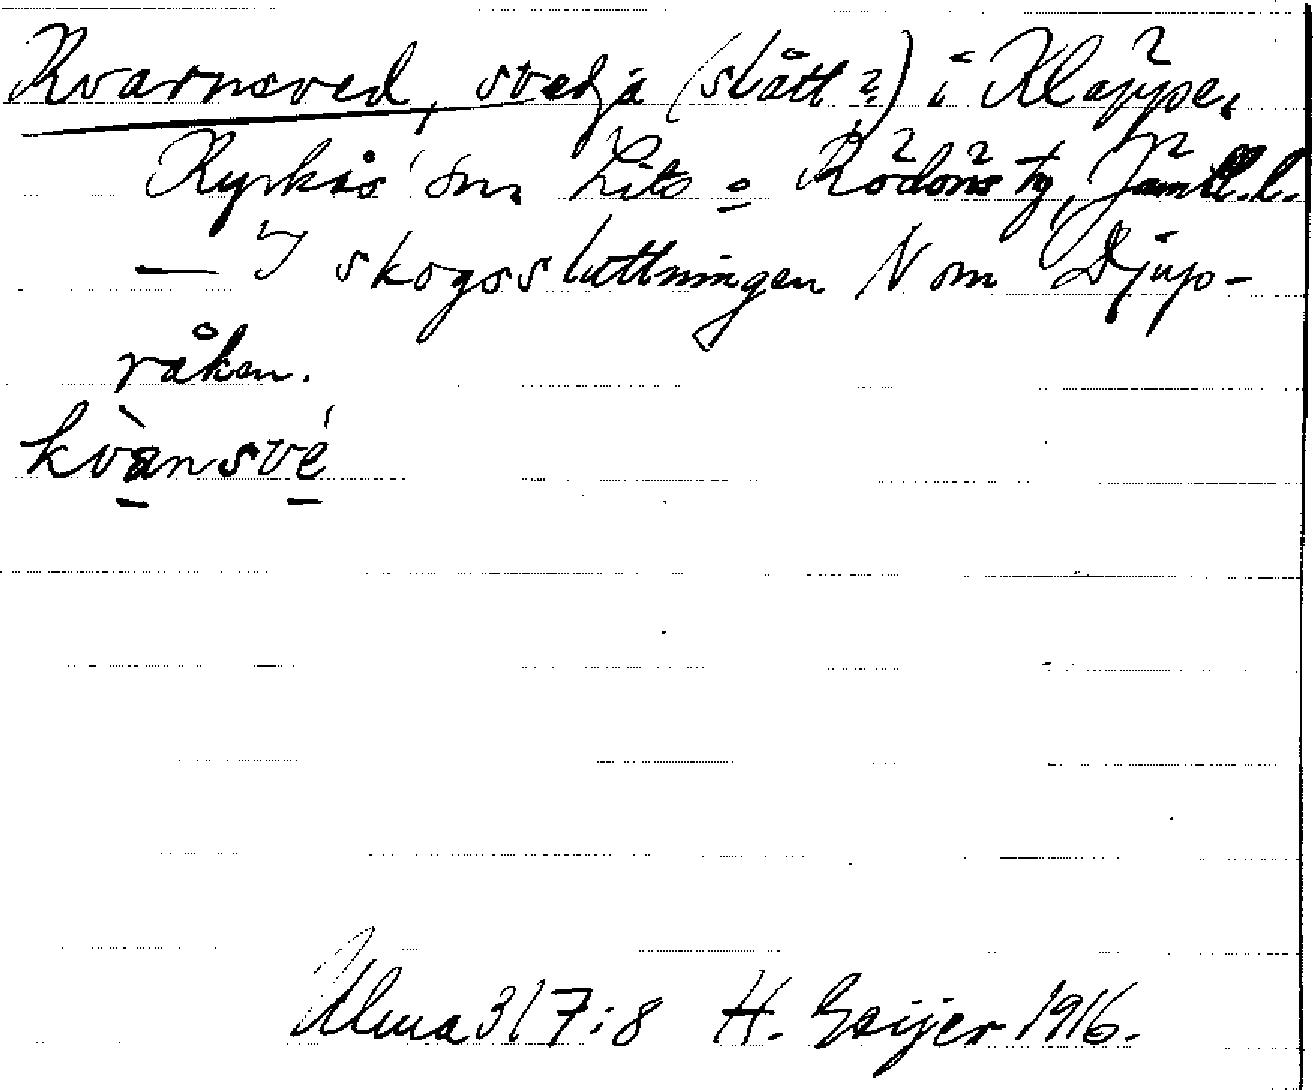 Kvarnsved, svedja (slått?) i Kläppe,
Kyrkås sn, Lits o Rödöns tg, Jämtl. l.
— I skogssluttningen N om Djup-
råken.
kvànsvé
Ulma 317:8 H. Geijer 1916.